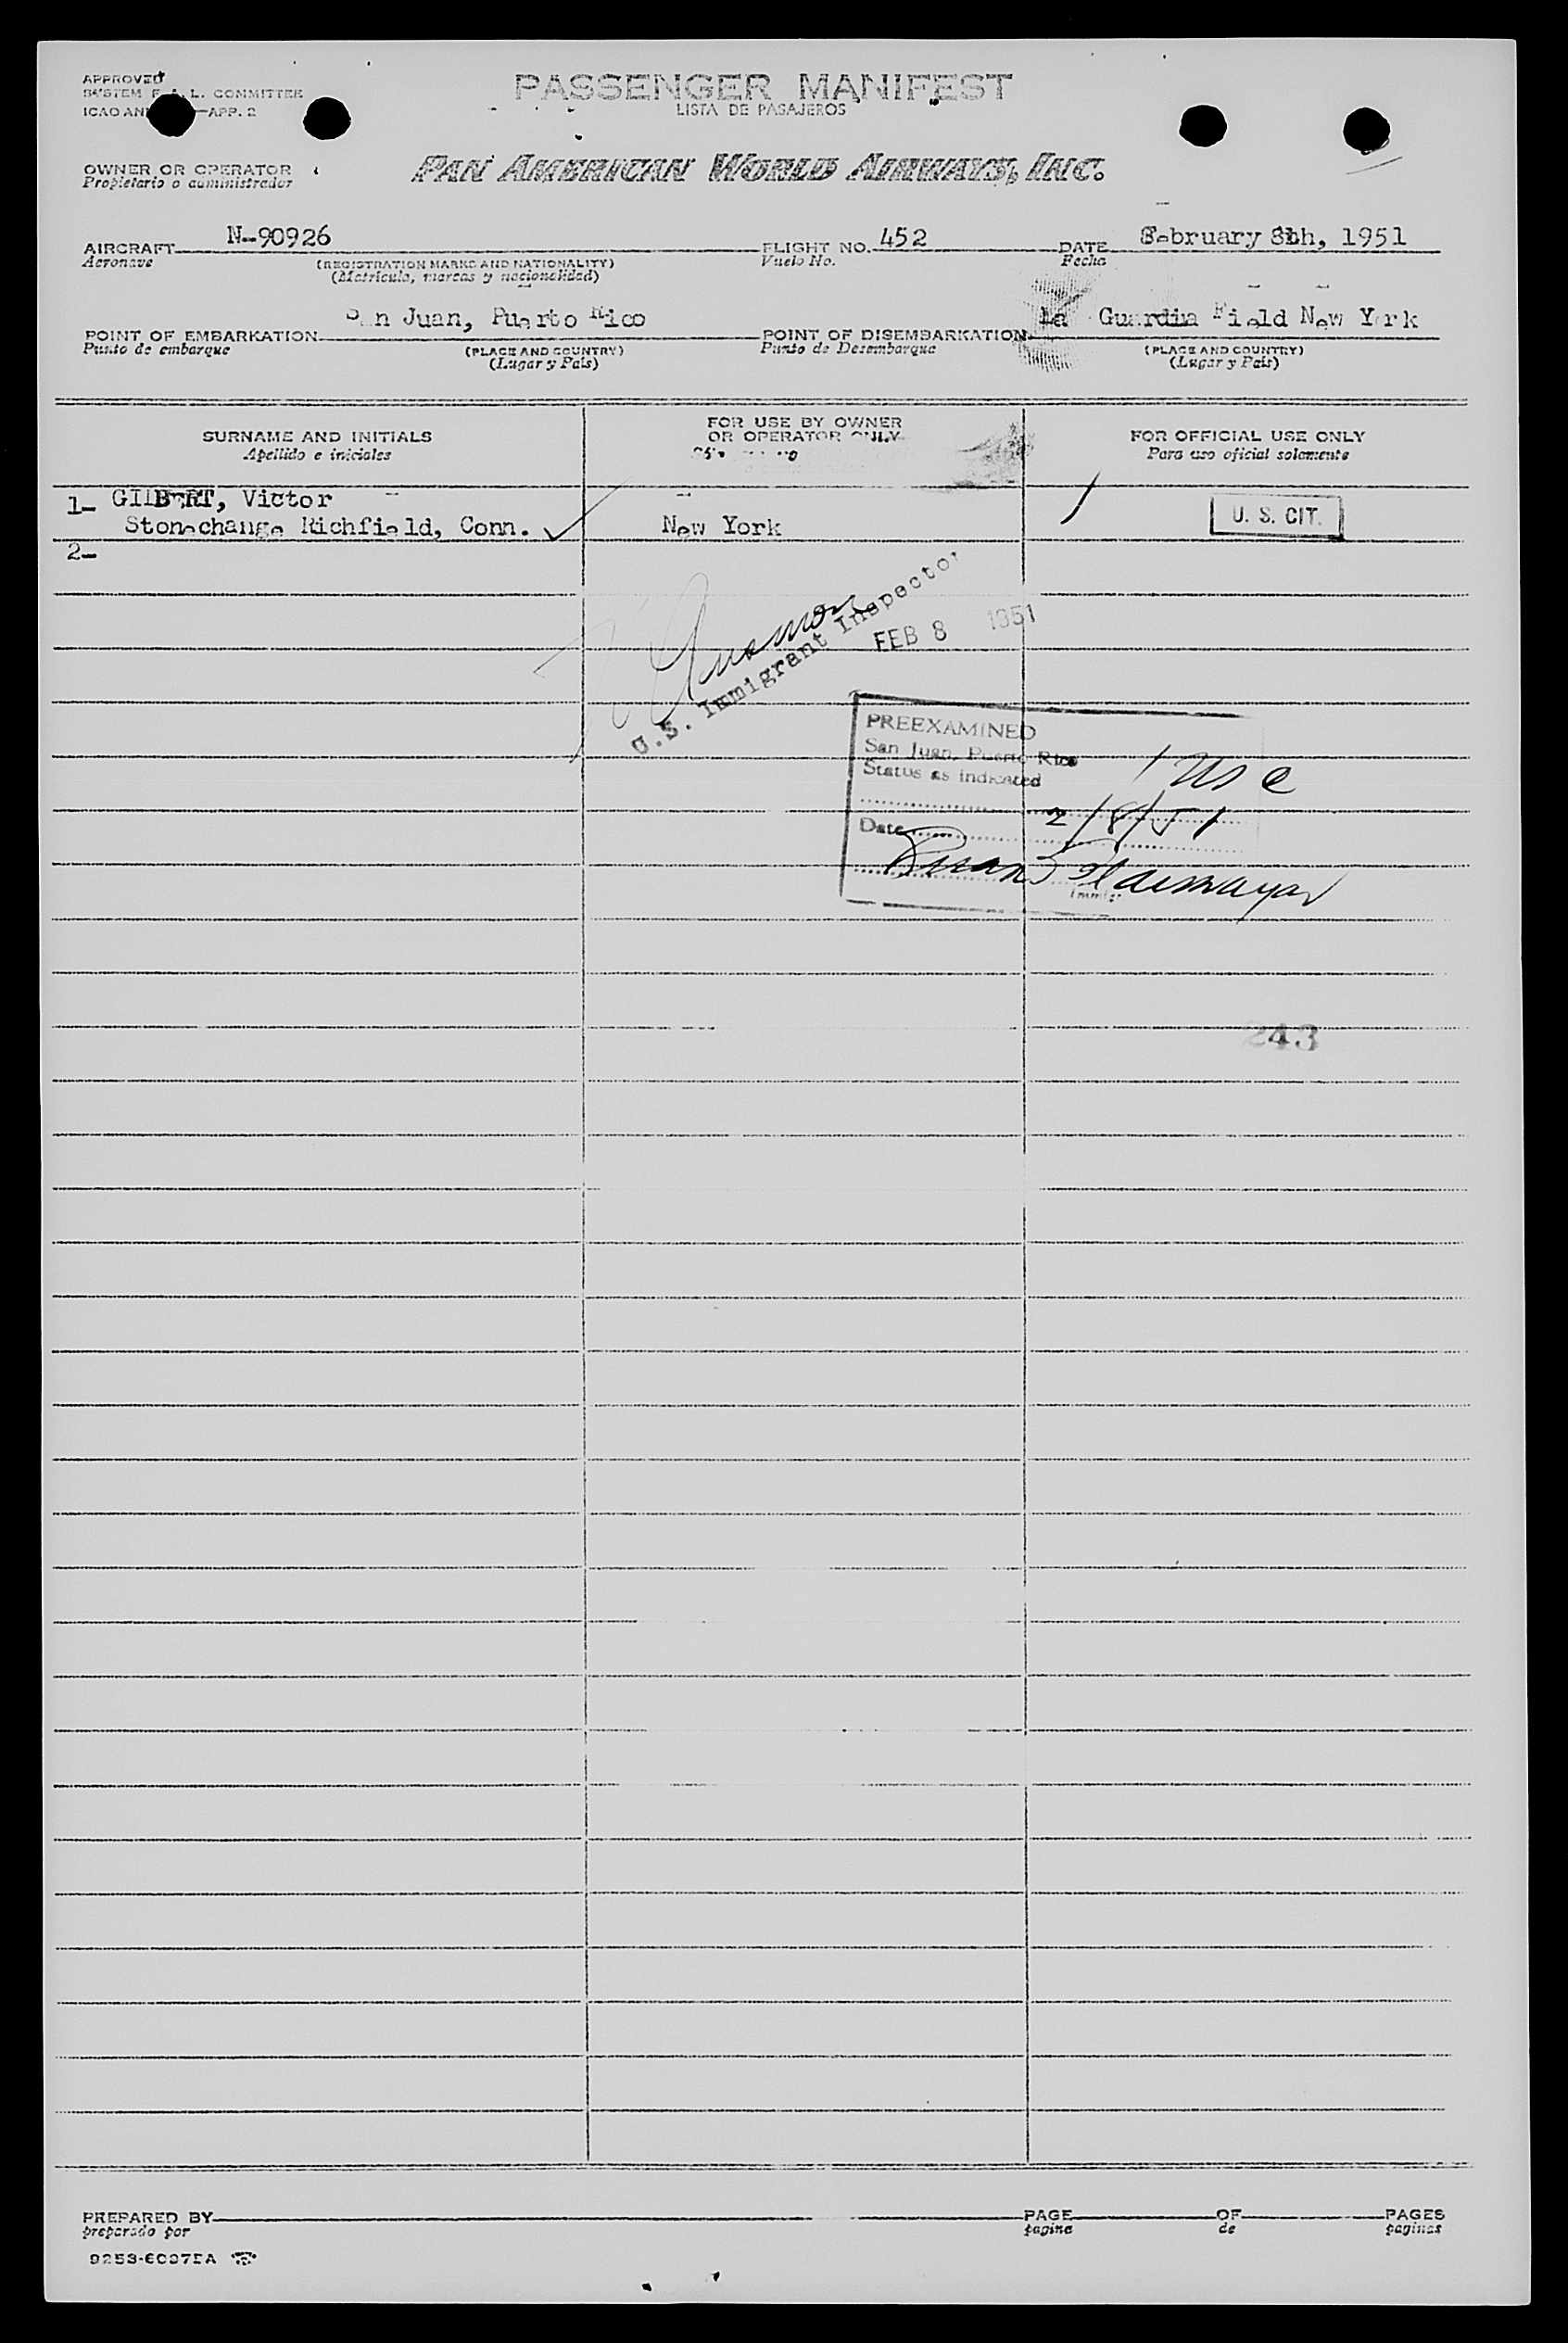 APPROVED
PASSENGER MANIFEST
SYSTEM F.A.L. COMMITTEE
LISTA DE PASAJEROS
ICAO AN —APP. 2
OWNER OR OPERATOR
PAN AMERICAN WORLD AIRWAYS, INC.
Propietario o administrador
AIRCRAFT N-90926 FLIGHT NO. 452 DATE February 8th, 1951
Aeronave (REGISTRATION MARKS AND NATIONALITY) Vuelo No. Fecha
(Matrícula, marcas y nacionalidad)
POINT OF EMBARKATION San Juan, Puerto Rico POINT OF DISEMBARKATION La Guardia Field New York
Punto de embarque (PLACE AND COUNTRY) Punto de Desembarque (PLACE AND COUNTRY)
(Lugar y País) (Lugar y País)
SURNAME AND INITIALS FOR USE BY OWNER OR OPERATOR ONLY FOR OFFICIAL USE ONLY
Apellido e iniciales Para uso oficial solamente
1- GILBERT, Victor
Stonechange Richfield, Conn. New York U. S. CIT.
2-
U.S. Immigrant Inspector
FEB 8 1951
PREEXAMINED
San Juan, Puerto Rico
Status as indicated
1 USC
Date 2/8/51
Immigr
243
PREPARED BY PAGE OF PAGES
preparado por pagina de paginas